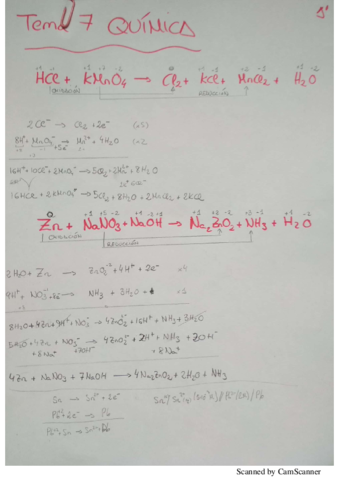 Tema 7 QUÍMICA
HCl + KMnO₄ → Cl₂ + KCl + MnCl₂ + H₂O
OXIDACIÓN REDUCCIÓN
2Cl⁻ → Cl₂ + 2e⁻ (x5)
8H⁺ + MnO₄⁻ + 5e⁻ → Mn²⁺ + 4H₂O (x2)
16H⁺ + 10Cl⁻ + 2MnO₄⁻ → 5Cl₂ + 2Mn²⁺ + 8H₂O
16HCl + 2KMnO₄ → 5Cl₂ + 8H₂O + 2MnCl₂ + 2KCl
Zn + NaNO₃ + NaOH → Na₂ZnO₂ + NH₃ + H₂O
OXIDACIÓN
REDUCCIÓN
2H₂O + Zn → ZnO₂²⁻ + 4H⁺ + 2e⁻ x4
NH₃ + 3H₂O
8H₂O + 4Zn + 9H⁺ + NO₃⁻ → 4ZnO₂²⁻ + 16H⁺ + NH₃ + 3H₂O
5H₂O + 4Zn + NO₃⁻ → 4ZnO₂²⁻ + 7H⁺ + NH₃ + 7OH⁻
+ 8Na⁺ + 7OH⁻ + 8Na⁺
4Zn + NaNO₃ + 7NaOH → 4Na₂ZnO₂ + 2H₂O + NH₃
Sn → Sn²⁺ + 2e⁻
Pb²⁺ + 2e⁻ → Pb
Pb²⁺ + Sn → Sn²⁺ + Pb
Scanned by CamScanner